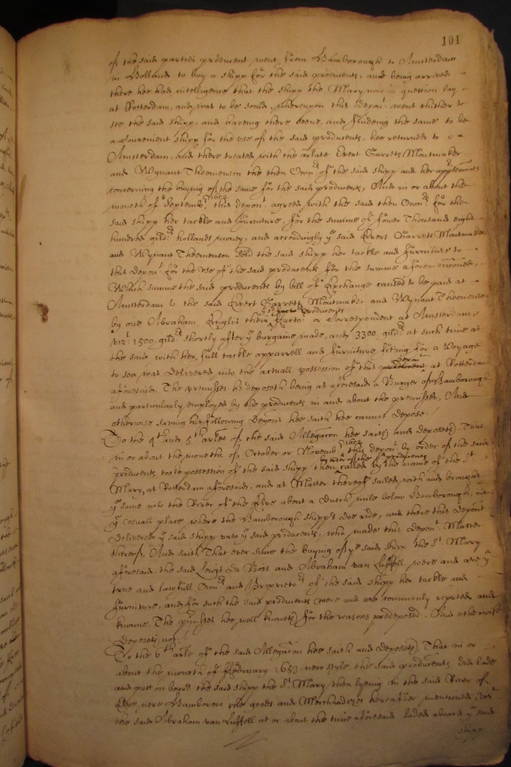 101
of the said parties producent, went from Hamborough to Amsterdam
in Holland to buy a shipp for the said producents, and being arrived
there hee had intelligence that the shipp the Mary now in question lay
at Rotterdam, and was to be sould, whereupon this depon.t went thither to
see the said shipp, and having there beene and finding the same to be
a convenient shipp for the use of the said producents, hee returned to
Amsterdam, and there treated with the arlate Evert Garretts Moutmaker
and Wynant Theomesson the then Own.rs of the said shipp and her
concerning the buying of the same for the said producents, And in or about the
moneth of September this depon.t agreed with the said then Own.rs for the
said shipp her tackle and furniture, for the summe of foure Thousand eight
hundred gild.rs hollands money, and accordingly y.e said Evert Garrett Moutmaker
and Wynant Theomesson sold the said shipp her tackle and furniture to
this depon.t for the use of the said producents for the summe aforementioned,
Which summe the said producents by bill of Exchange caused to be paid at
Amsterdam to the said Evert Garretts Moutmaker and Wynant Theomesson
by one Abraham their factor or Correspondent at Amsterdam
1500 gild.rs shortly after y.e bargaine made, and 3300 gild.rs at such time as
the said with her full tackle apparrell and furniture fitting for a Voyage
to sea, was delivered into the actuall possession of this at Rotterdam
aforesaid. The premisses hee deposeth being as aforesaid a Burger of Hamborough
and particularly employed by the producents in and about the premisses, And
otherwise saving his following depon.t hee saith hee cannot depose.
To the 4.th and 5.th arles of the said Allegation hee saith and deposeth That
in or about the moneth of October or November this depon.t by order of the said
producents tooke possession of the said shipp then called by the name of the
Mary, at Rotterdam aforesaid, and as Master thereof sailed with and brought
y.e same into the River of the Elve about a Dutch mile below Hamborough,
y.e usuall place where the Hamborough shipps doe ride, and there this deponent
delivered y.e said shipp unto y.e said producents, who made this depon.t Master
thereof, And saith That ever since the buying of y.e said shipp the S.t Mary
aforesaid the said and Abraham van Luffell were and are y.e
true and lawfull Own.rs and Proprieto.rs of the said shipp her tackle and
furniture, and for such the said producents were and are commonly reputed and
knowne. The premisses hee well knoweth for the reasons predeposed. And otherwise
deposeth not.
To the 6.th arle of the said Allegation hee saith and deposeth, That in or
about the moneth of February 1653 new style the said producents did lade
and putt on board the said shipp the S.t Mary, then lyeing in the said River of
Elve, neere Hamborow the goods and Merchandizes hereafter mentioned,
the said Abraham van Luffell at or about the time aforesaid laded aboard y.e said
shipp